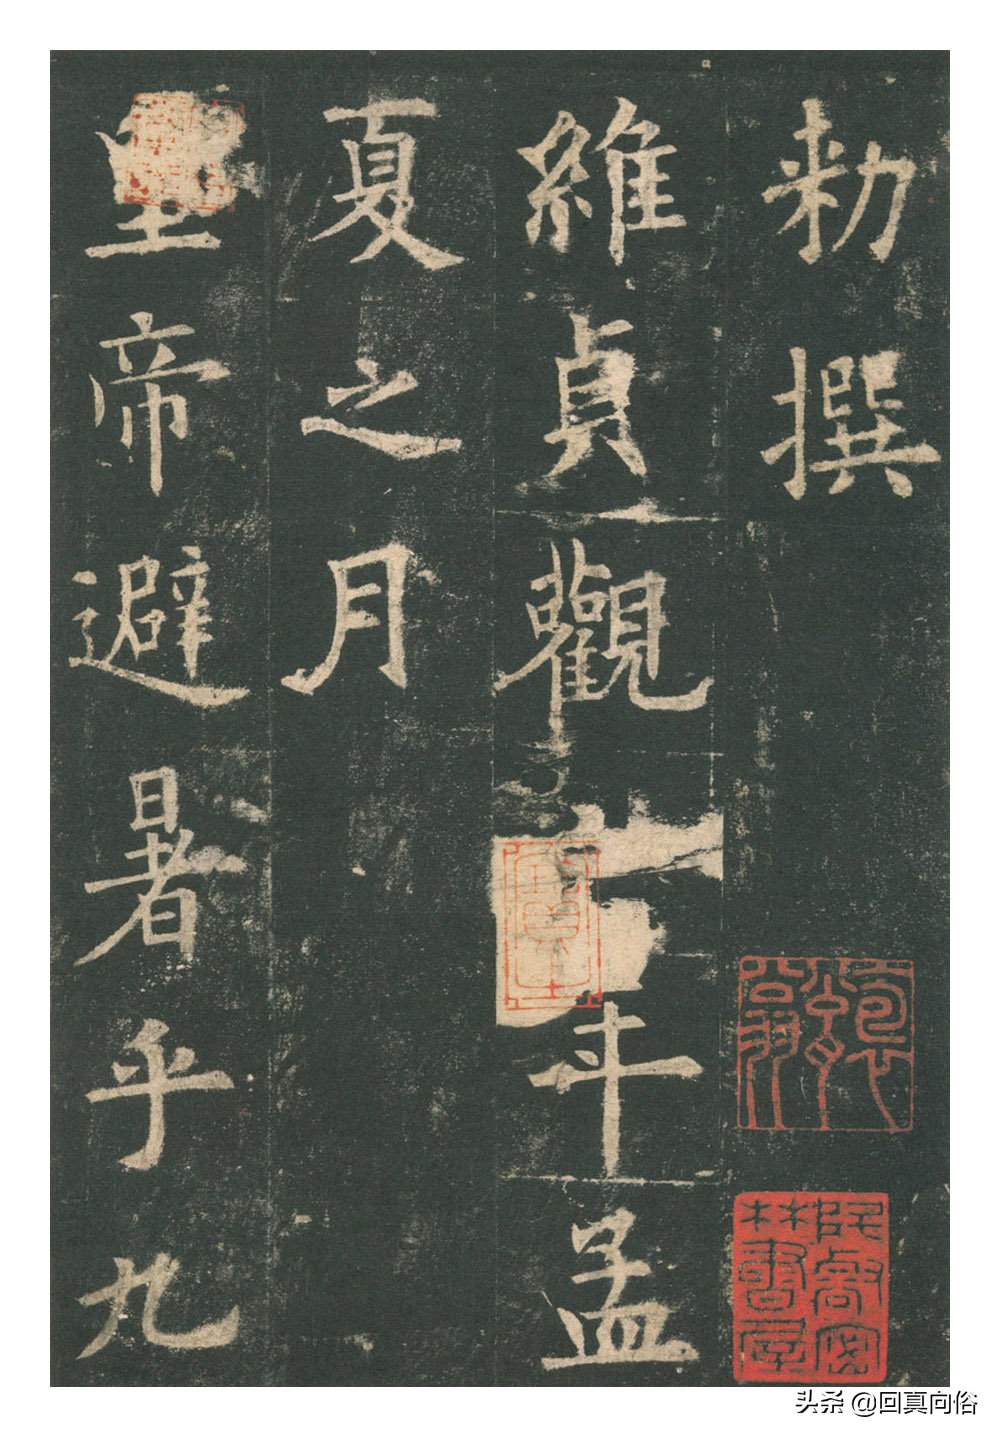 勑撰
維貞觀年孟
夏之月
皇帝避暑乎九
头条 @回真向俗